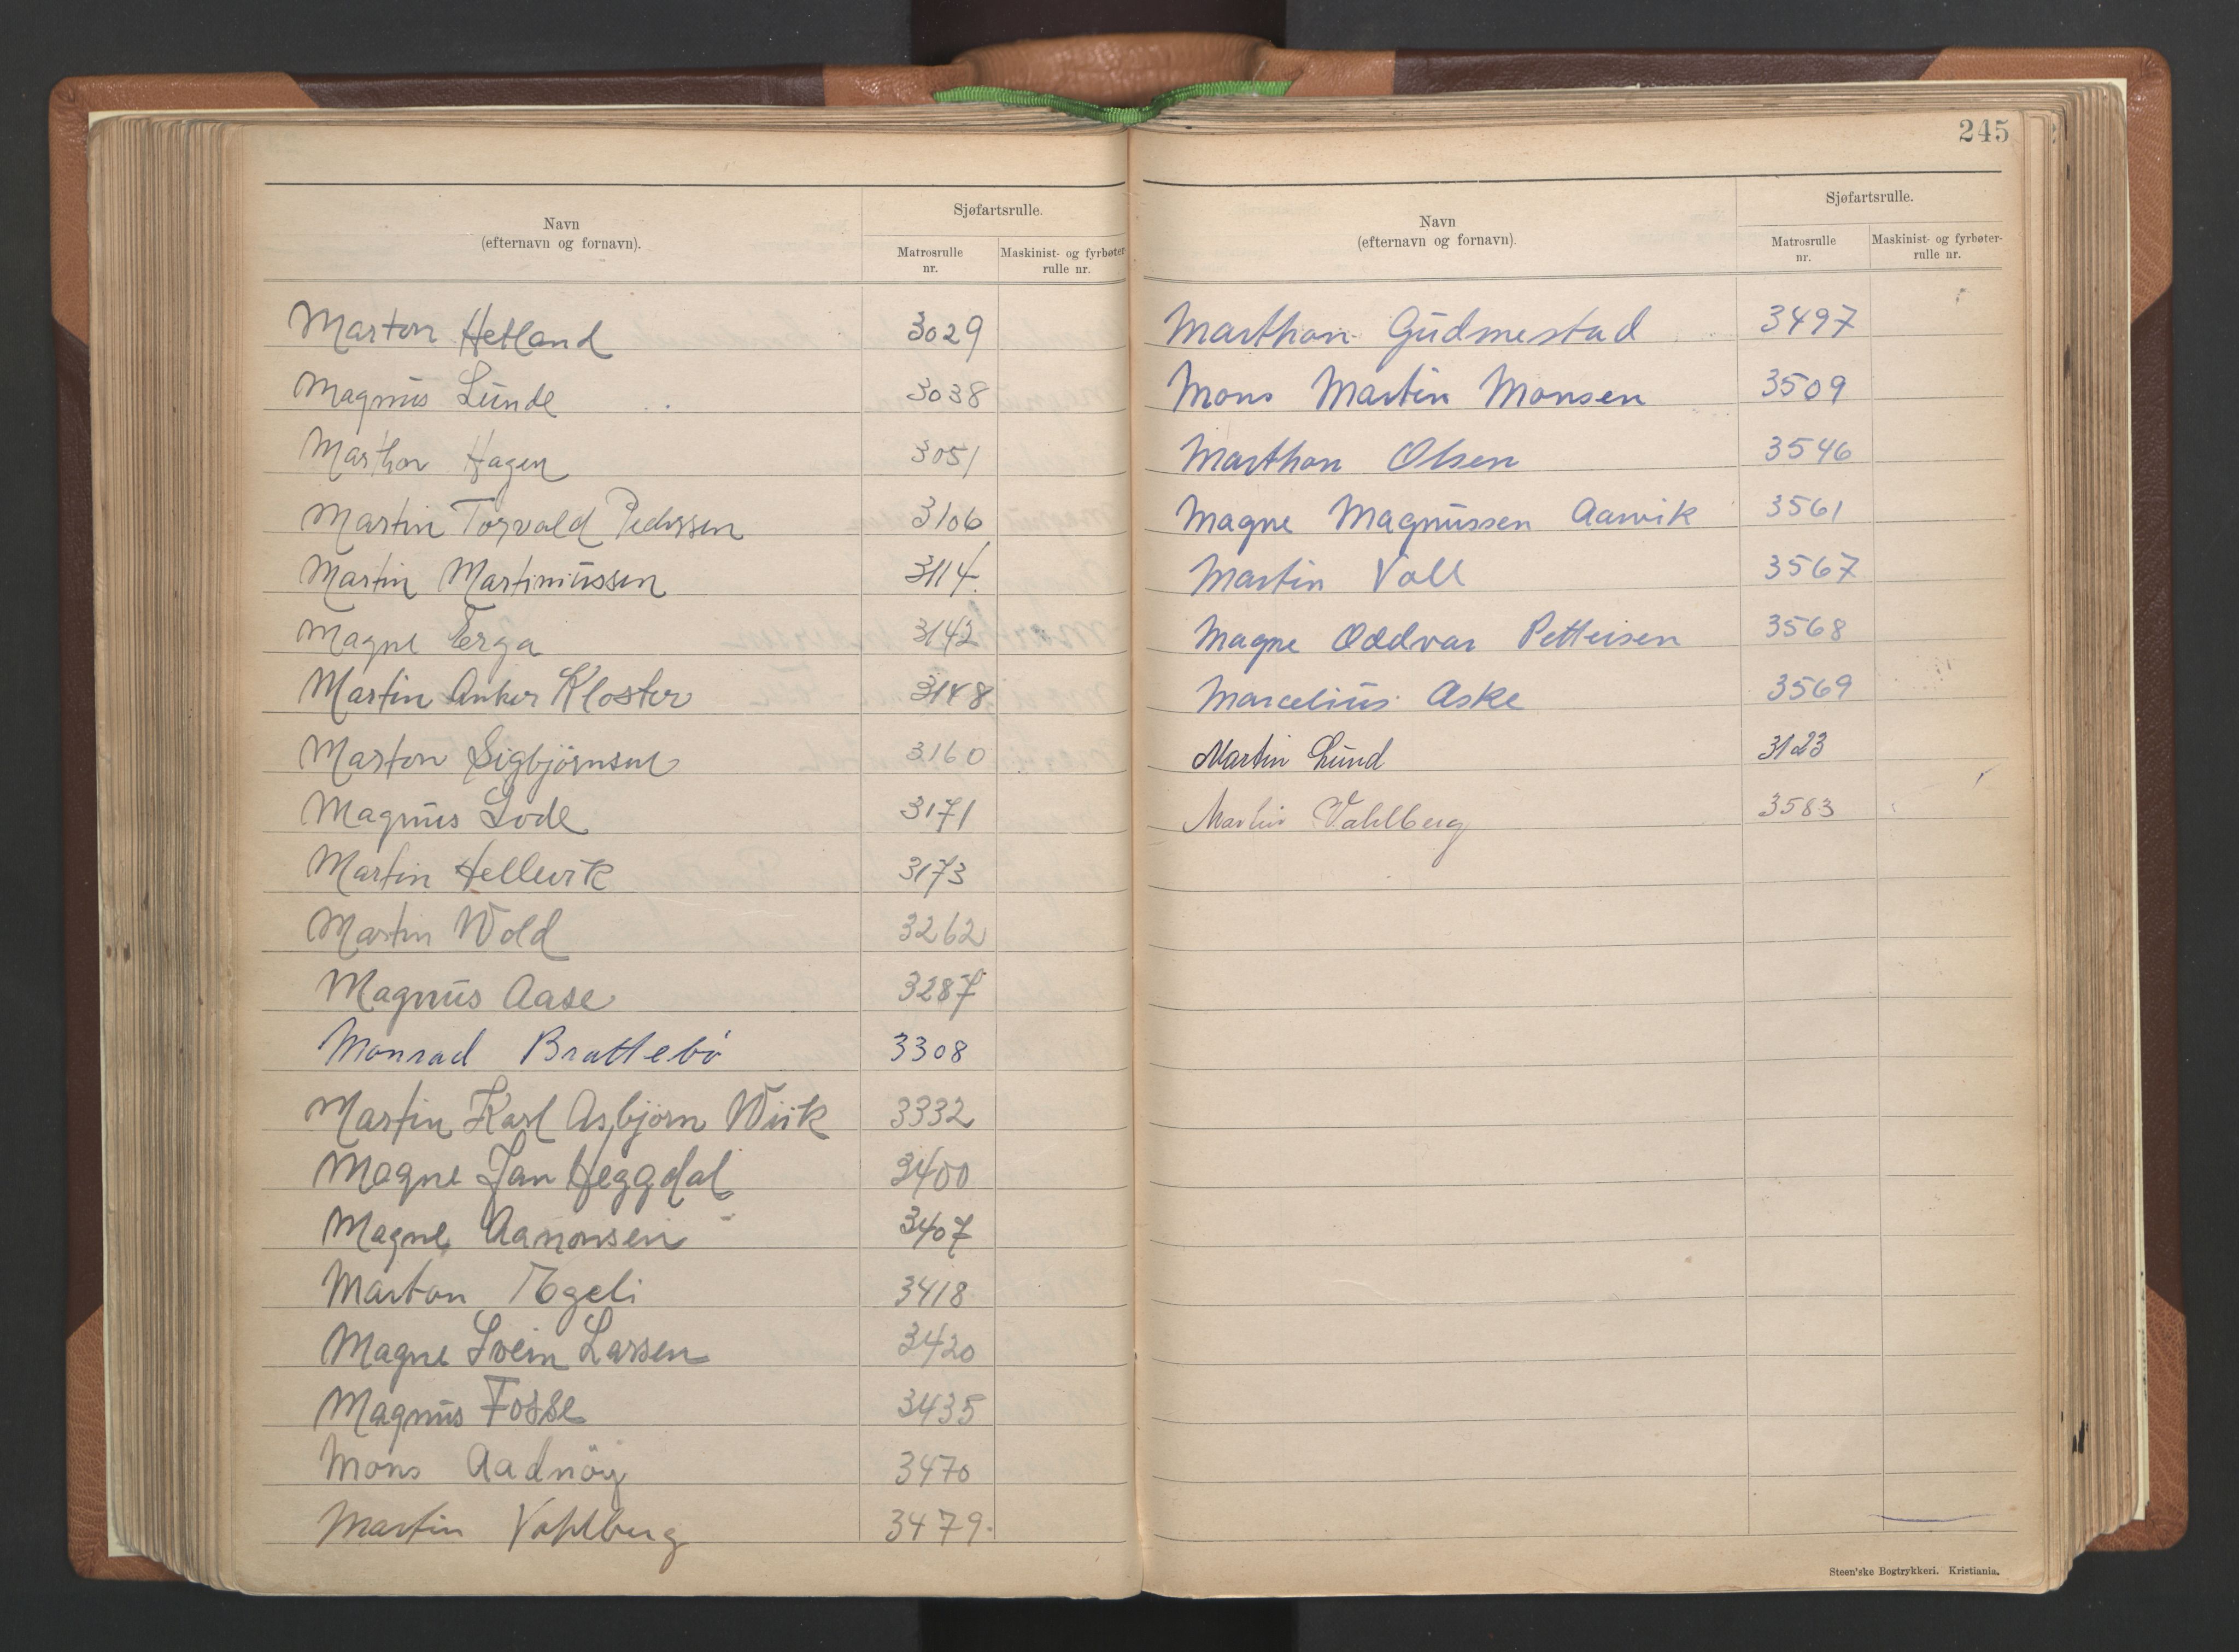 Navn
(efternavn og fornavn).
Sjøfartsrulle.
Matrosrulle nr.
Maskinist- og fyrbøter rulle nr.
Marton Hetland 3029
Magnus Lunde 3038
Marthon Hagen 3051
Martin Torvald Pedersen 3106
Martin Martiniussen 3114
Magne Erga 3142
Martin Anker Kloster 3148
Marton Sigbjörnsen 3160
Magnus Lode 3171
Martin Hellevik 3173
Martin Wold 3262
Magnus Aase 3287
Monrad Brattebö 3308
Martin Karl Asbjørn Wiik 3332
Magne Jan Heggdal 3400
Magne Aanonsen 3407
Marton Egeli 3418
Magne Svein Larsen 3420
Magnus Fosse 3435
Mons Aadnöy 3470
Martin Vahlberg 3479.
245
Navn
(efternavn og fornavn).
Sjøfartsrulle.
Matrosrulle nr.
Maskinist- og fyrbøter- rulle nr.
Marthon Gudmestad 3497
Mons Martin Monsen 3509
Marthon Olsen 3546
Magne Magnussen Aarvik 3561
Martin Voll 3567
Magne Oddvar Pettersen 3568
Marcelius Aske 3569
Martin Lund 3123
Martin Vahlberg 3583
Steen'ske Bogtrykkeri. Kristiania.